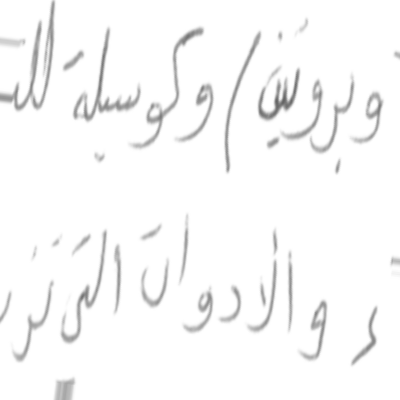 وبروتين) وكوسيلة للت
ء والادوات التى تز